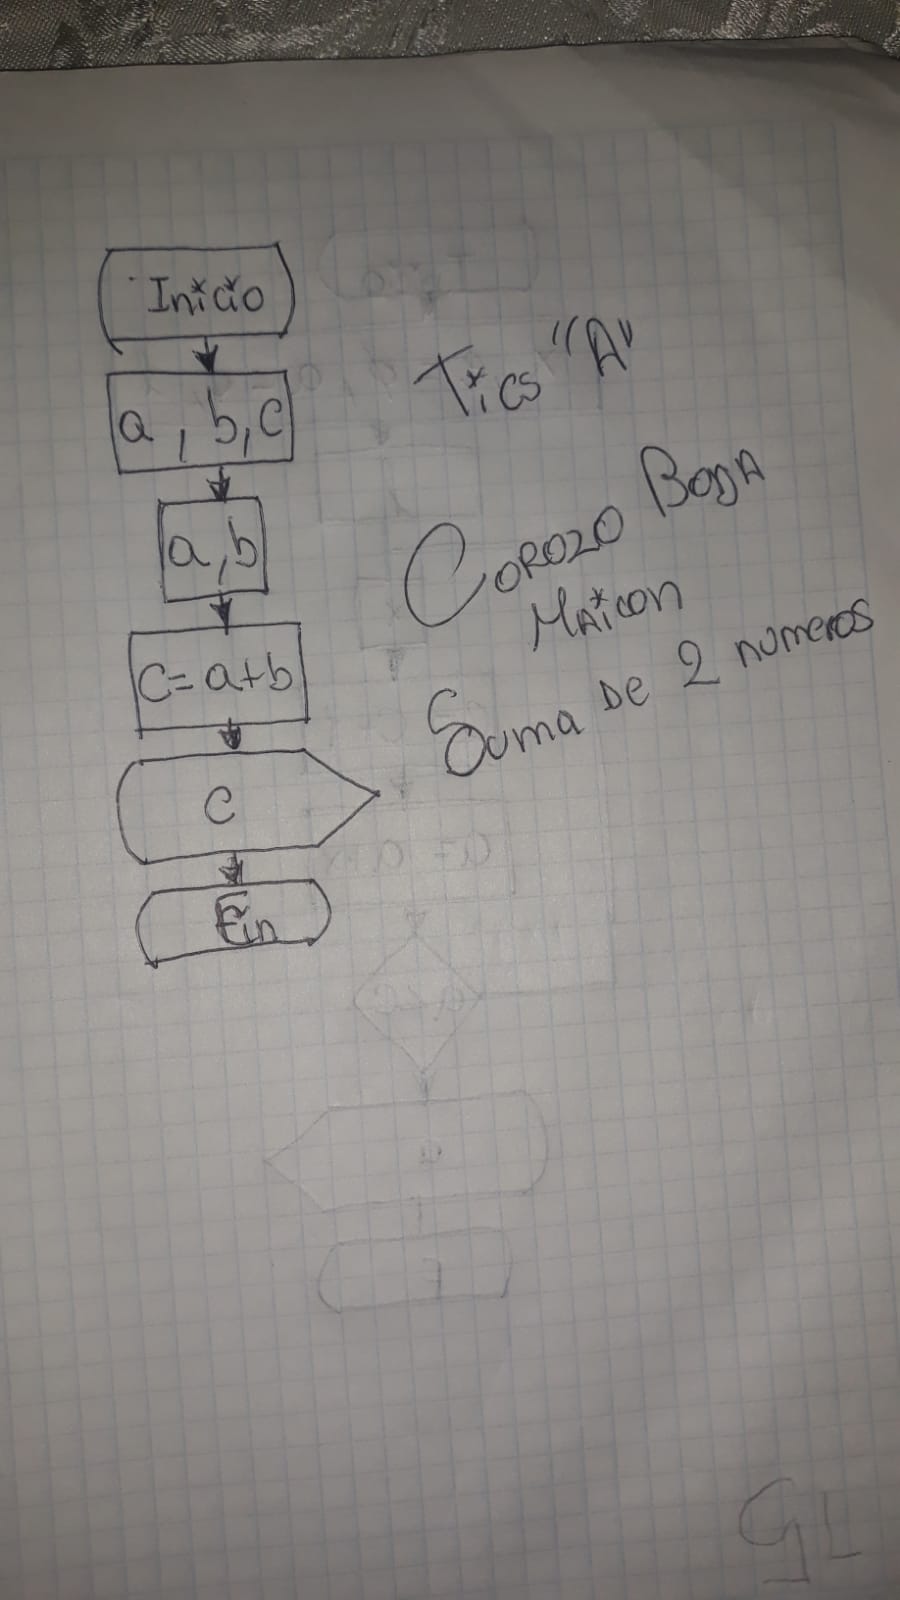 Inicio
a, b, c
a, b
C = a + b
C
Fin
Tics "A"
Corozo Boda
Maicon
Suma de 2 numeros